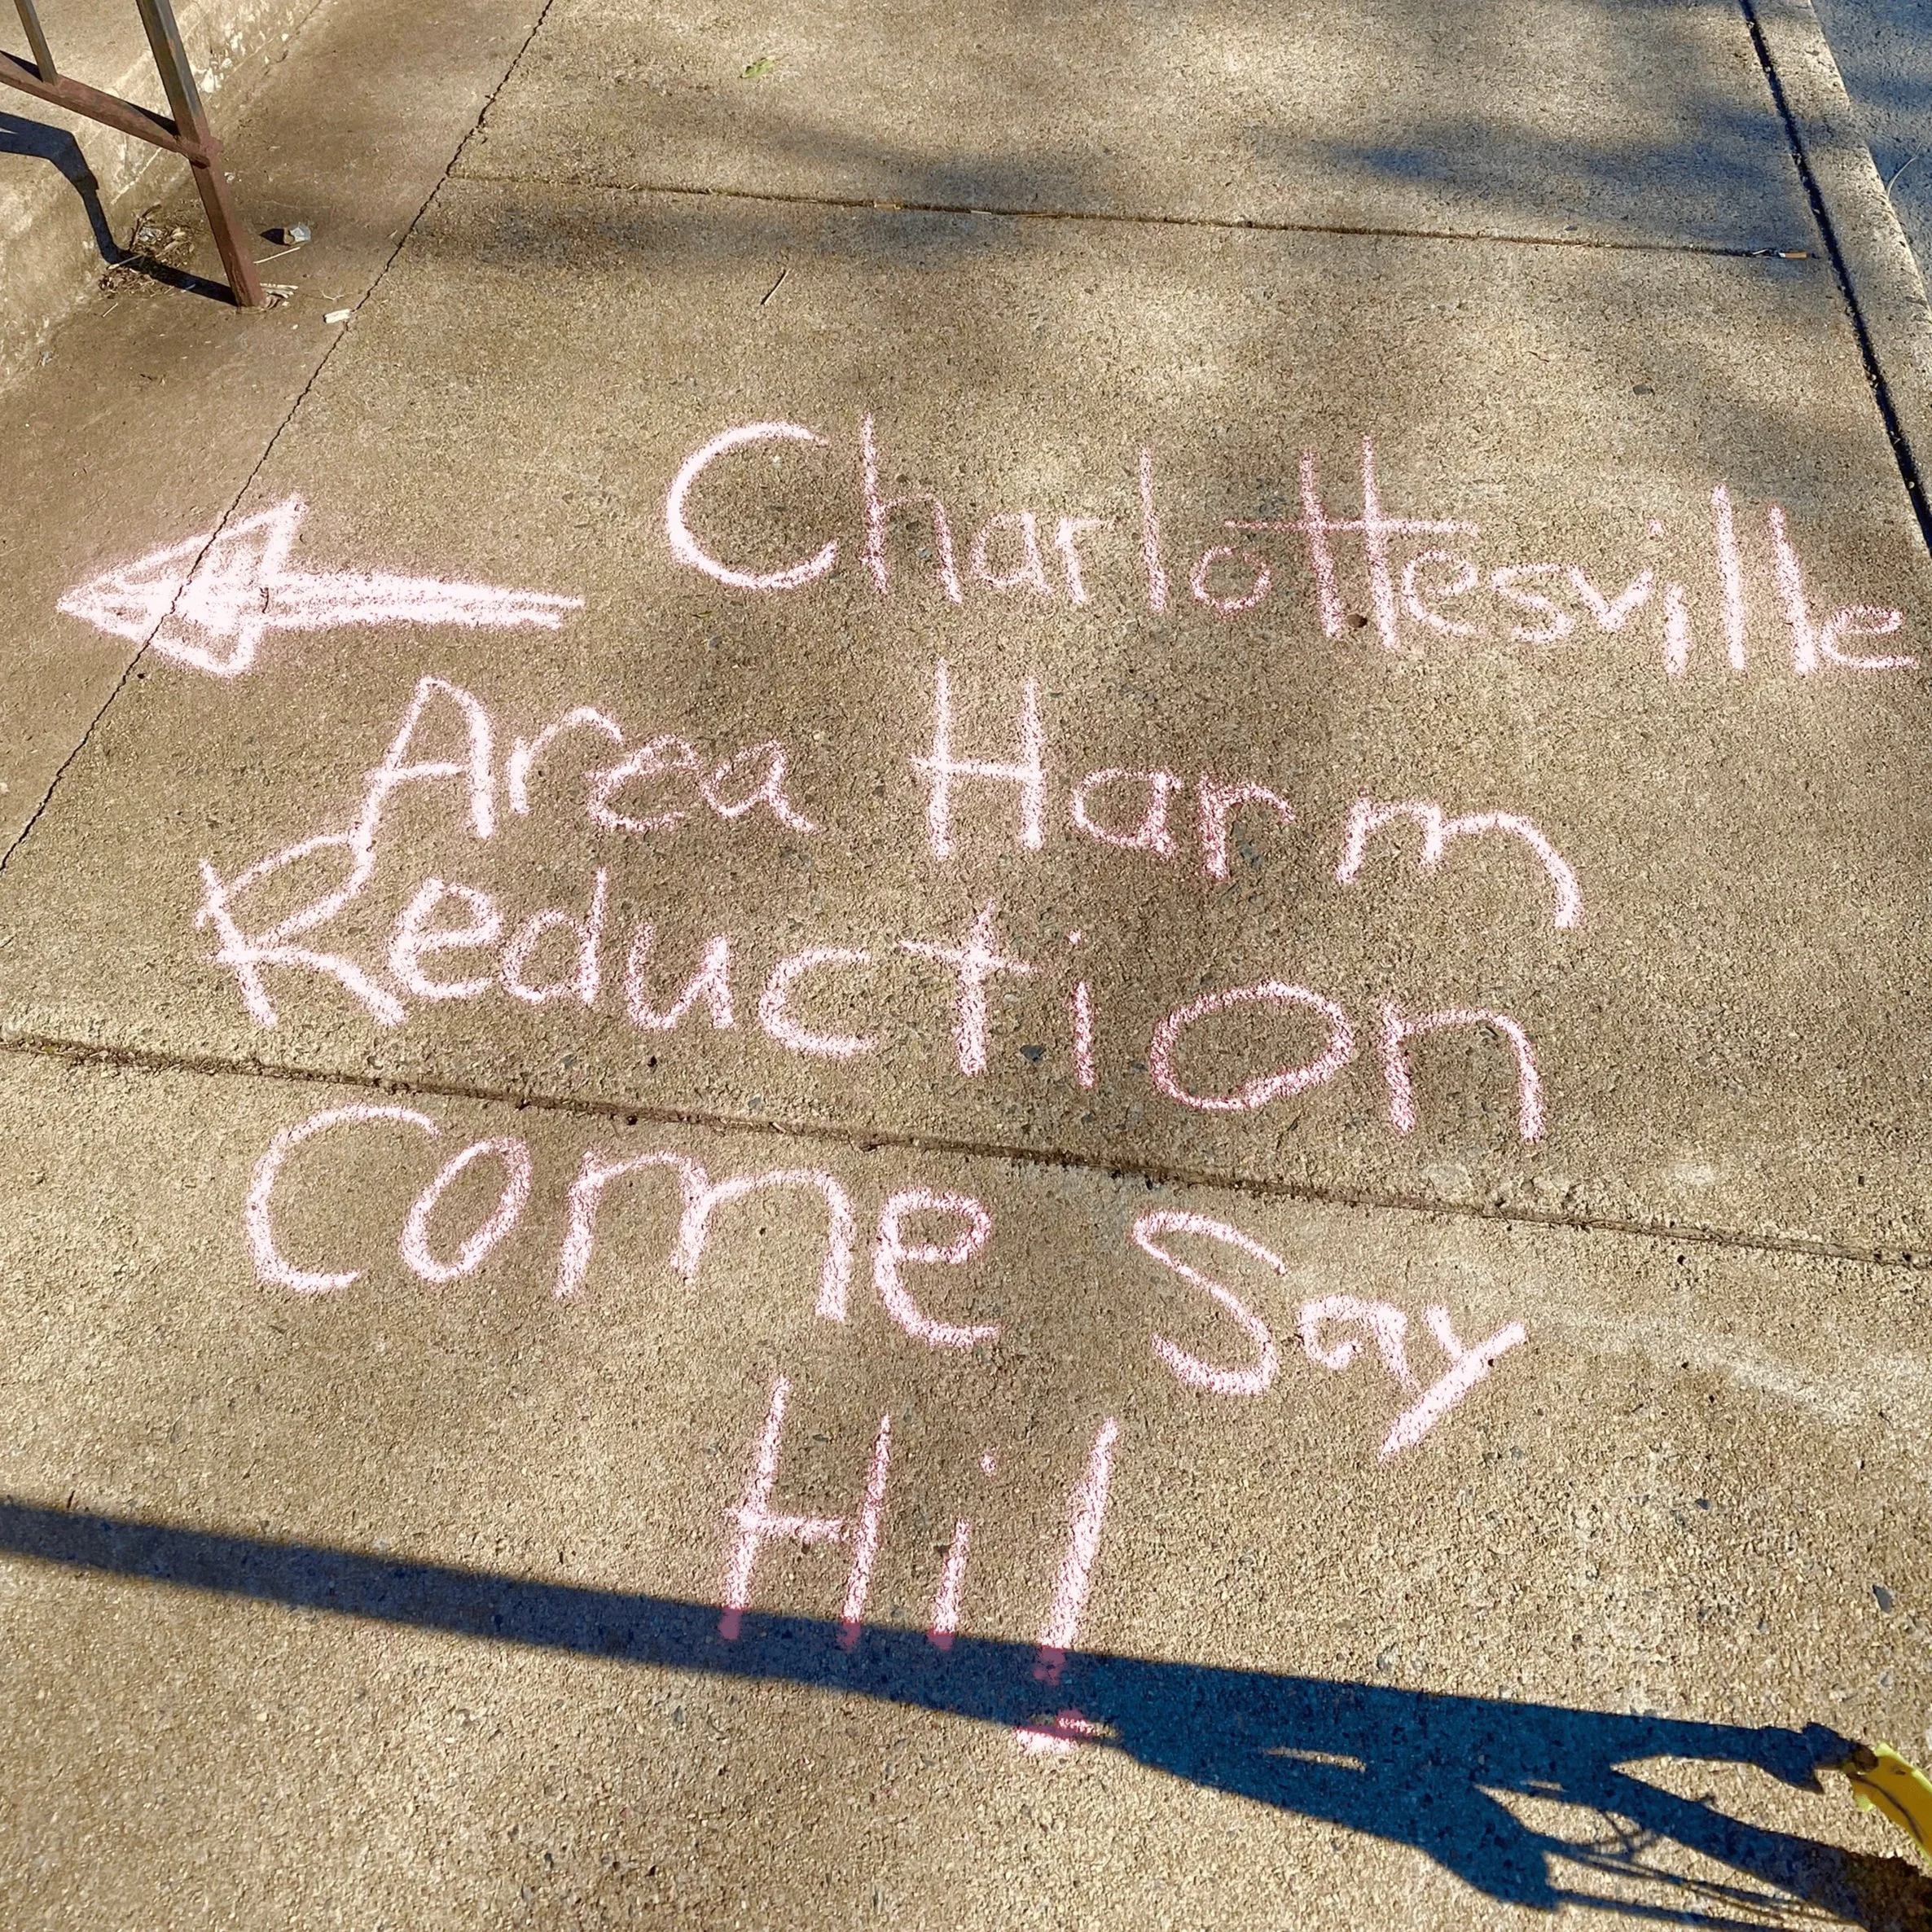 Charlottesville
Area Harm
Reduction
Come Say
Hi!